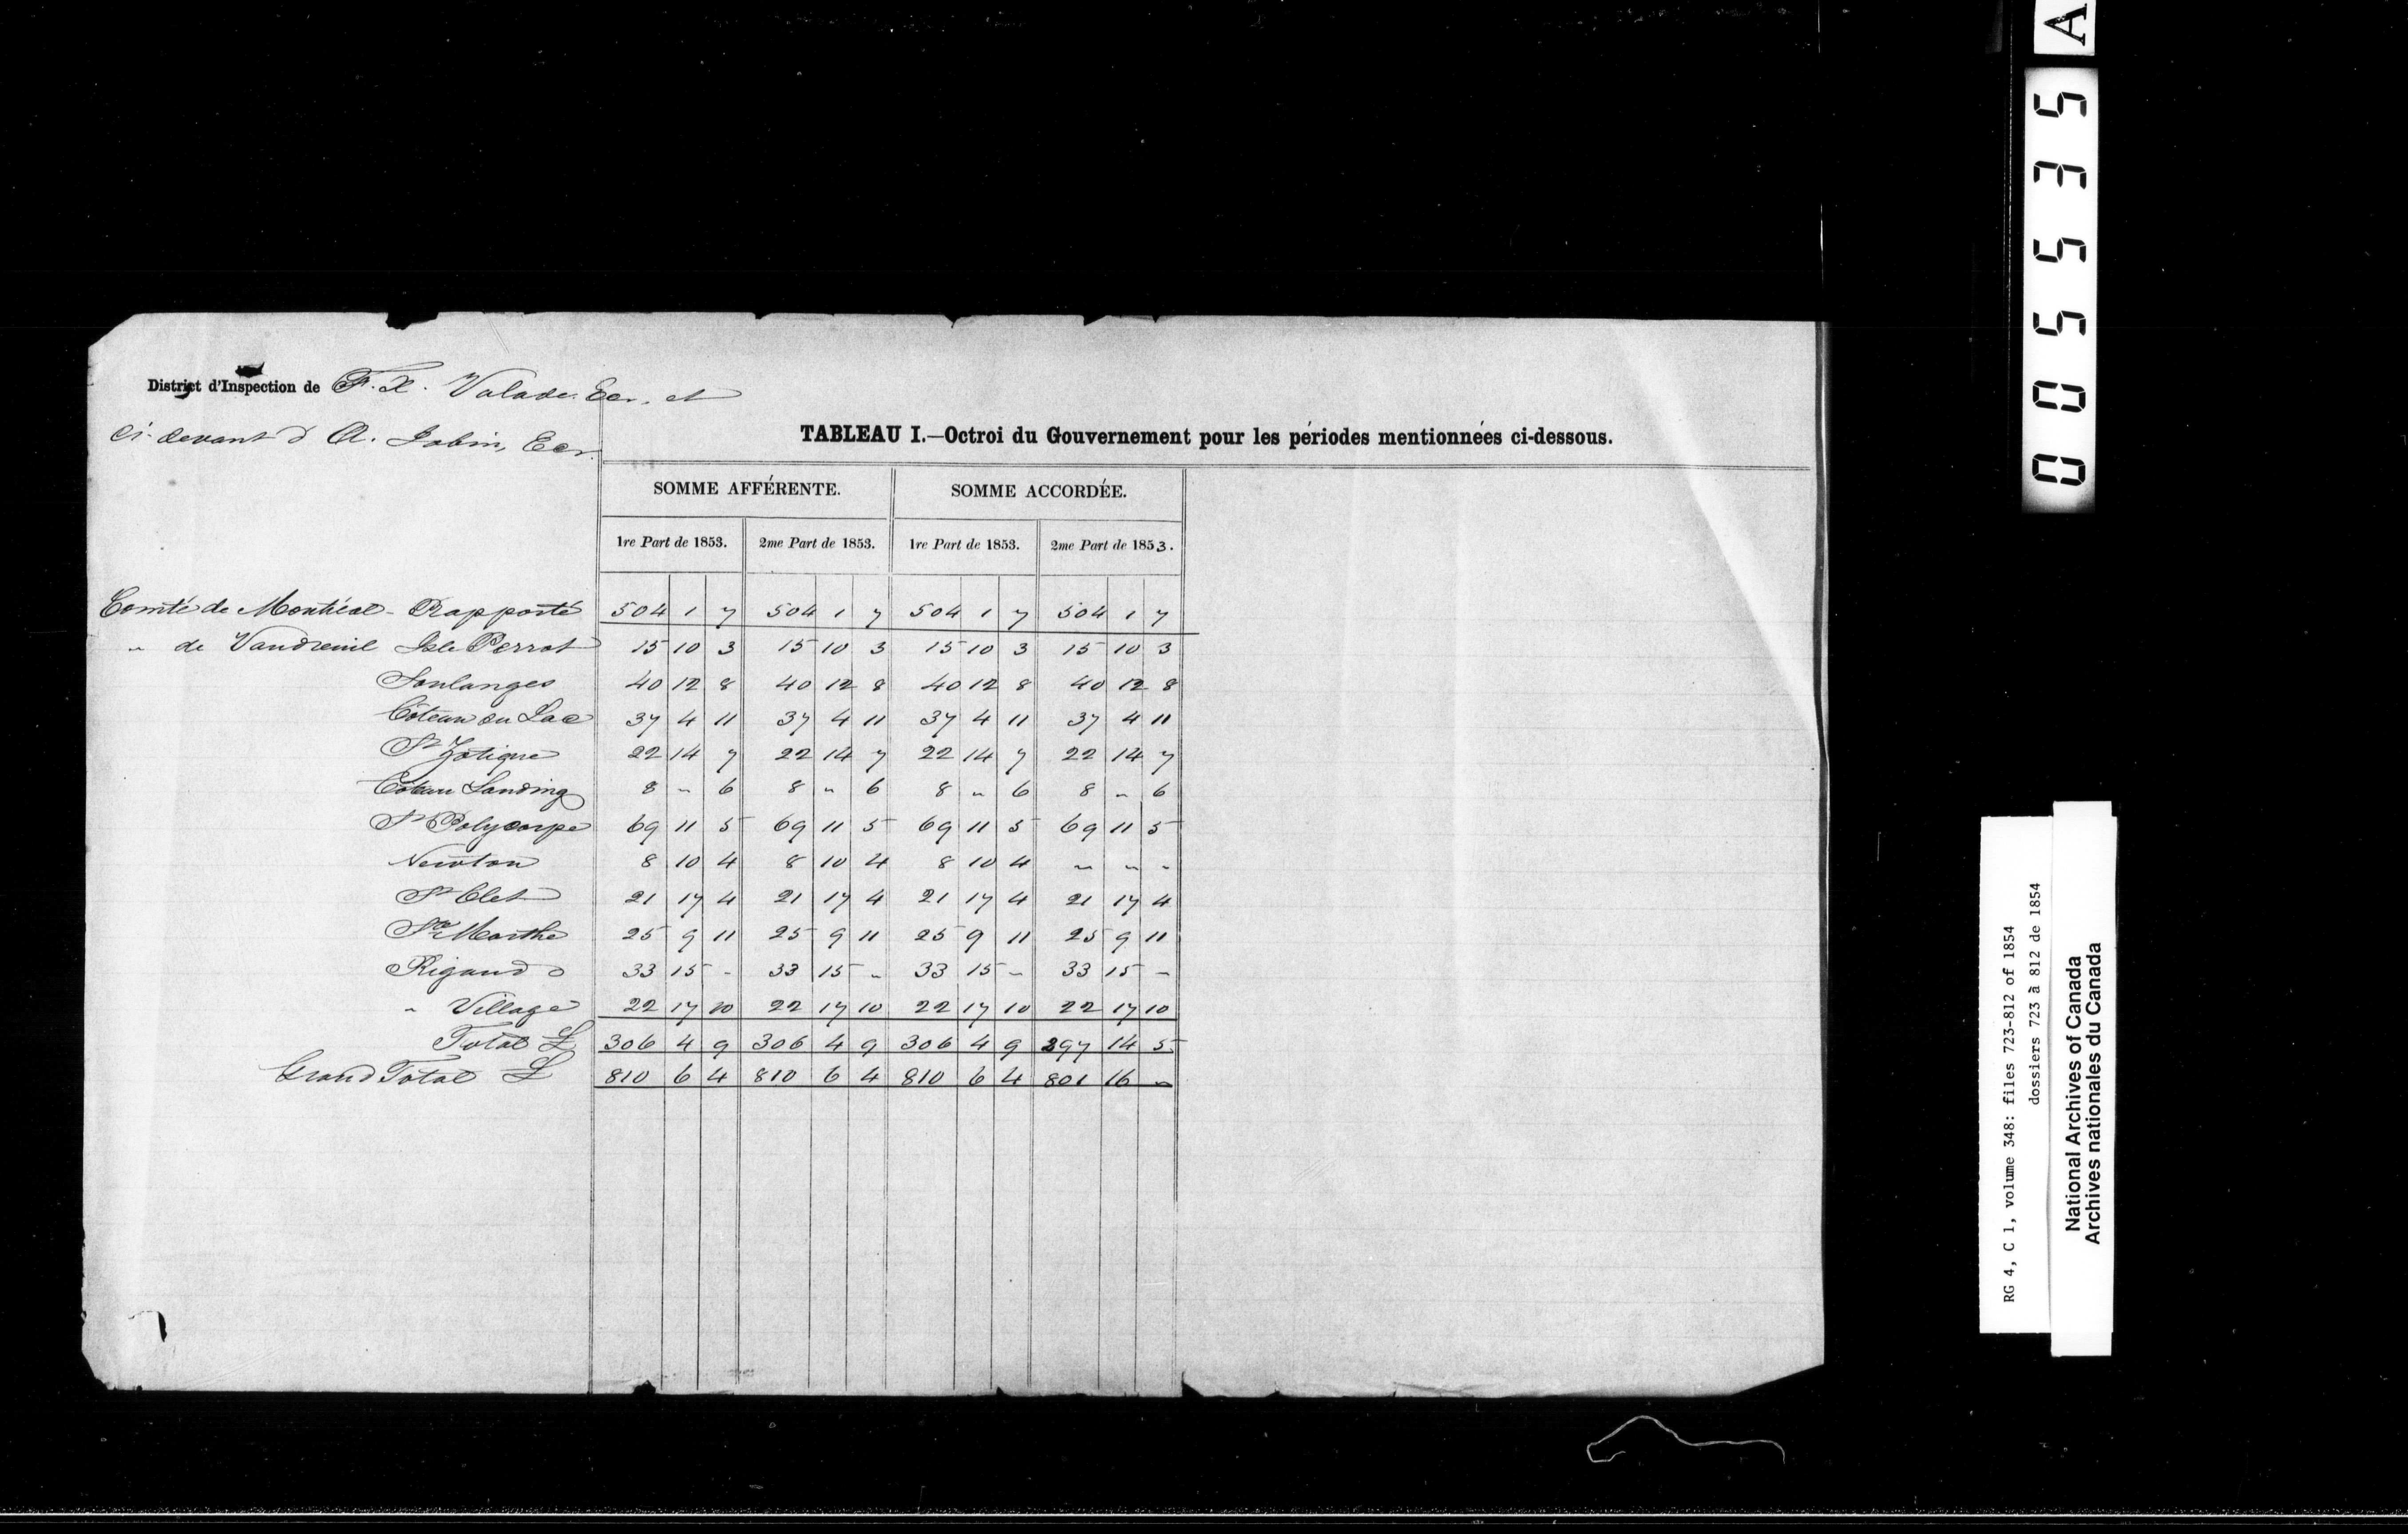 District d'Inspection de F. X. Valade Ecr. et
ci-devant d A. Jobin, Ecr.
TABLEAU I.—Octroi du Gouvernement pour les périodes mentionnées ci-dessous.
SOMME AFFÉRENTE. SOMME ACCORDÉE.
1re Part de 1853. 2me Part de 1853. 1re Part de 1853. 2me Part de 1853.
Comté de Montréal - Rapporté 504 1 7 504 1 7 504 1 7 504 1 7
" de Vaudreuil Isle Perrot 15 10 3 15 10 3 15 10 3 15 10 3
Soulanges 40 12 8 40 12 8 40 12 8 40 12 8
Côteau du Lac 37 4 11 37 4 11 37 4 11 37 4 11
St Zotique 22 14 7 22 14 7 22 14 7 22 14 7
Coteau Landing 8 " 6 8 " 6 8 " 6 8 " 6
St Polycarpe 69 11 5 69 11 5 69 11 5 69 11 5
Newton 8 10 4 8 10 4 8 10 4 " " "
St Clet 21 17 4 21 17 4 21 17 4 21 17 4
Ste Marthe 25 9 11 25 9 11 25 9 11 25 9 11
Rigaud 33 15 - 33 15 - 33 15 - 33 15 -
" Village 22 17 10 22 17 10 22 17 10 22 17 10
Total £ 306 4 9 306 4 9 306 4 9 297 14 5
Grand Total £ 810 6 4 810 6 4 810 6 4 801 16 "
005535
A
RG 4, C 1, volume 348: files 723-812 of 1854
dossiers 723 à 812 de 1854
National Archives of Canada
Archives nationales du Canada